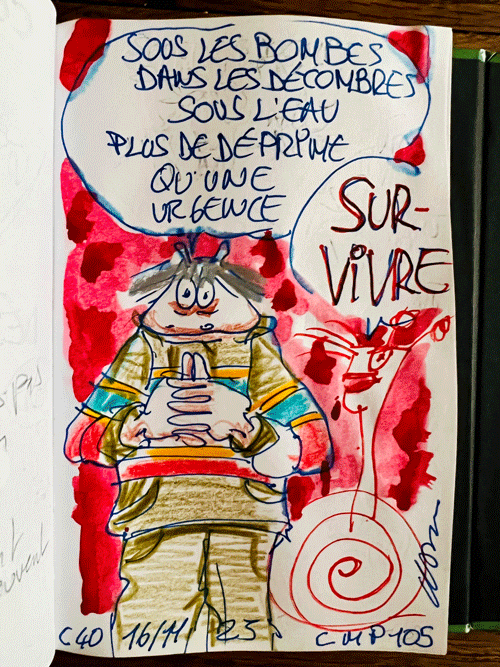 SOUS LES BOMBES
DANS LES DÉCOMBRES
SOUS L'EAU
PLUS DE DÉPRIME
QU'UNE
URGENCE
SUR-
VIVRE
C40 16/11 23 CMP105